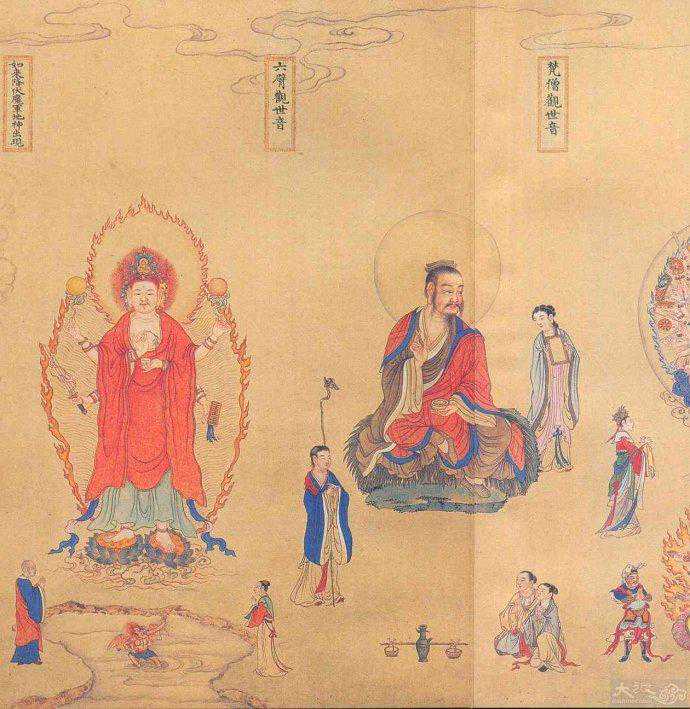 梵僧觀世音
六臂觀世音
如來降伏魔軍地神出現